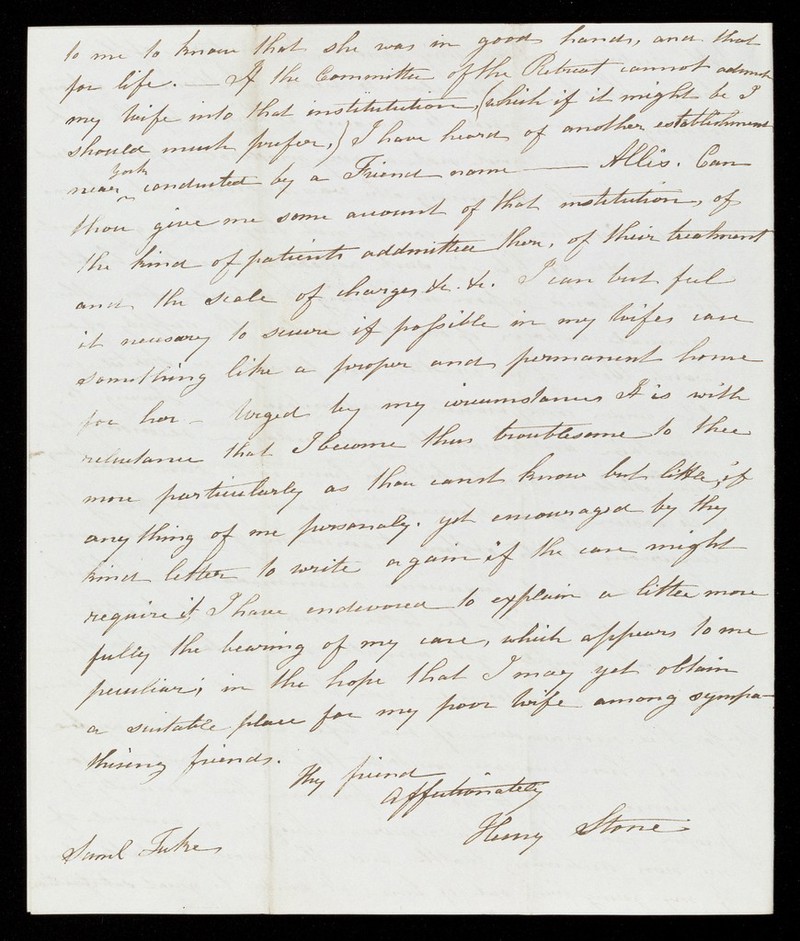 to me to know that she was in good hands, and that
for life. — If the Committee of the Retreat cannot admit
my wife into that institution, (which if it might be I
should much prefer,) I have heard of another establishment
near York conducted by a Friend name —— Allis. Can
thou give me some account of that institution, of
the kind of patients addmitted ther, of their treatment
and the scale of charges &c. &c. I can but feel
it necessary to secure if possible in my wifes case
something like a proper and permanent home
for her – Urged by my circumstances It is with
reluctance that I become thus troublesome to thee
more particularly as thou canst know but little, if
any thing of me personaly. yet encouraged by thy
kind letter to write again if the case might
require it, I have endevored to explain a little more
fully the bearing of my case, which appears to me
peculiar; in the hope that I may yet obtain
a suitable place for my poor wife among sympa-
thising friends.
Thy friend
affectionately
Henry Stone
Saml Tuke